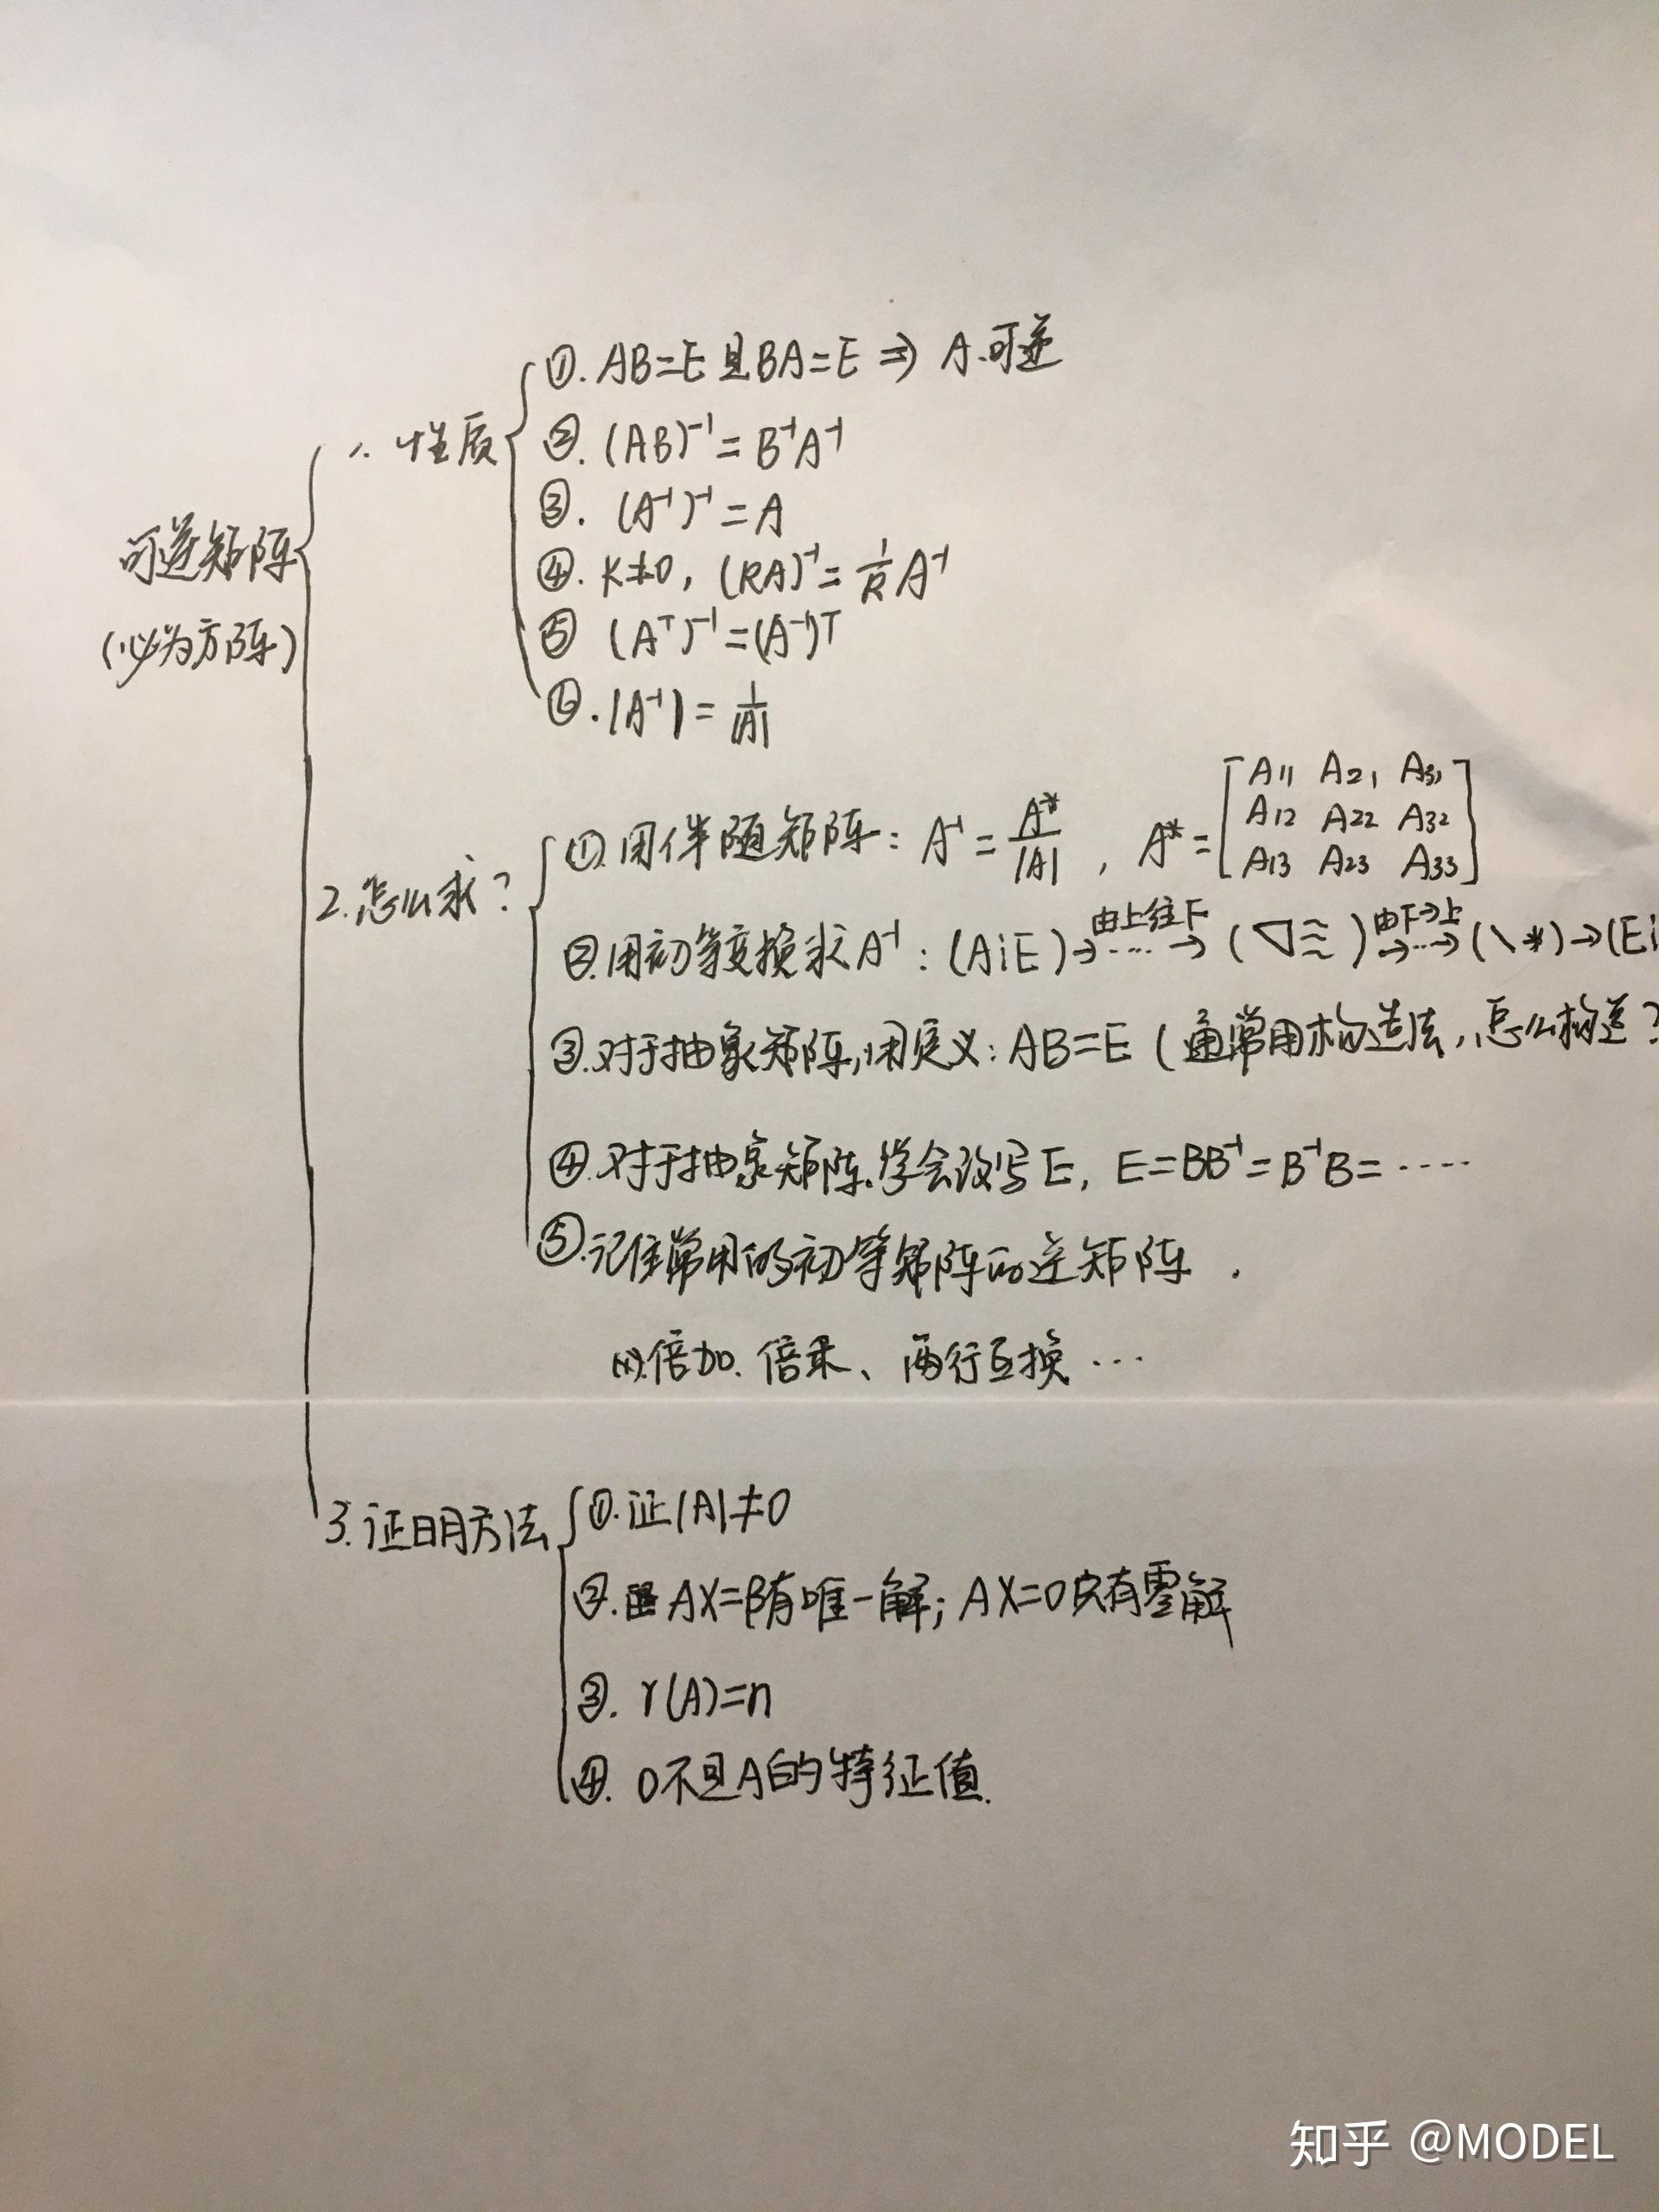 可逆矩阵
(必为方阵)
1. 性质
①. AB=E 且 BA=E ⇒ A可逆
②. (AB)⁻¹ = B⁻¹A⁻¹
③. (A⁻¹)⁻¹ = A
④. K≠0, (kA)⁻¹ = 1/k A⁻¹
⑤ (Aᵀ)⁻¹ = (A⁻¹)ᵀ
⑥. |A⁻¹| = 1/|A|
2. 怎么求?
①. 用伴随矩阵: A⁻¹ = A*/|A| , A* = [A11 A21 A31
A12 A22 A32
A13 A23 A33]
②. 用初等变换求A⁻¹: (A¦E) →····→ 由上往下 (▽≋) →··→ 由下→上 (\ *) → (E¦
③. 对于抽象矩阵,用定义: AB=E (通常用构造法,怎么构造?
④. 对于抽象矩阵.学会改写E, E=BB⁻¹=B⁻¹B=·····
⑤. 记住常用的初等矩阵的逆矩阵.
倍加. 倍乘、两行互换···
3. 证明方法
①. 证|A|≠0
②. AX=β有唯一解; AX=0只有零解
③. r(A)=n
④. 0不是A的特征值.
知乎 @MODEL